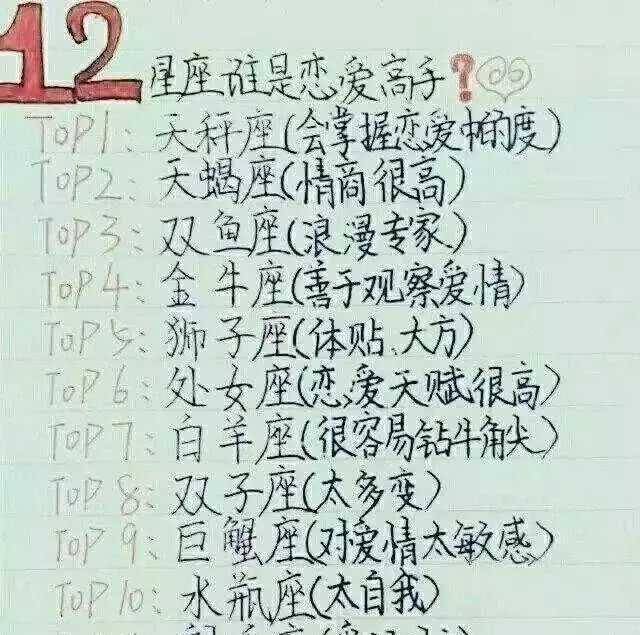 12星座谁是恋爱高手?
TOP1:天秤座(会掌握恋爱中的度)
TOP2:天蝎座(情商很高)
TOP3:双鱼座(浪漫专家)
TOP4:金牛座(善于观察爱情)
TOP5:狮子座(体贴、大方)
TOP6:处女座(恋爱天赋很高)
TOP7:白羊座(很容易钻牛角尖)
TOP8:双子座(太多变)
TOP9:巨蟹座(对爱情太敏感)
TOP10:水瓶座(太自我)